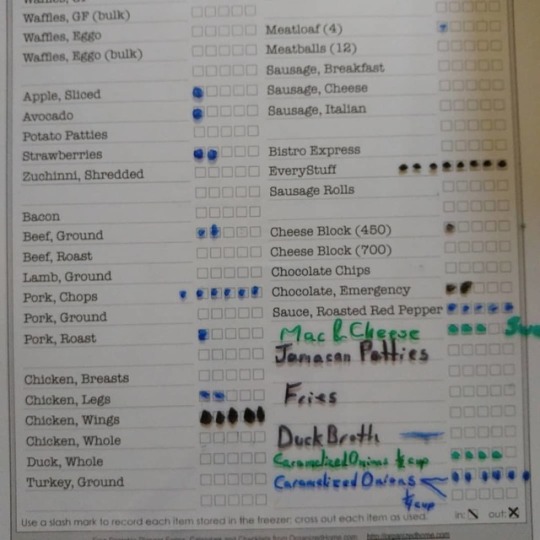 Waffles, GF (bulk)
Waffles, Eggo
Waffles, Eggo (bulk)
Apple, Sliced
Avocado
Potato Patties
Strawberries
Zuchinni, Shredded
Bacon
Beef, Ground
Beef, Roast
Lamb, Ground
Pork, Chops
Pork, Ground
Pork, Roast
Chicken, Breasts
Chicken, Legs
Chicken, Wings
Chicken, Whole
Duck, Whole
Turkey, Ground
Meatloaf (4)
Meatballs (12)
Sausage, Breakfast
Sausage, Cheese
Sausage, Italian
Bistro Express
EveryStuff
Sausage Rolls
Cheese Block (450)
Cheese Block (700)
Chocolate Chips
Chocolate, Emergency
Sauce, Roasted Red Pepper
Mac & Cheese
Jamacan Patties
Fries
Duck Broth
Caramelized Onions ½ cup
Caramelized Onions
¼ cup
Use a slash mark to record each item stored in the freezer; cross out each item as used. in: out: